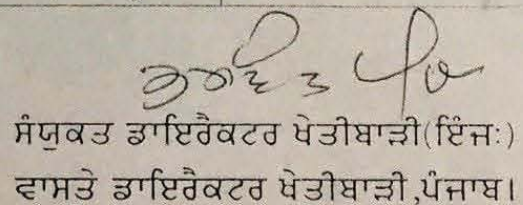 ਸੰਯੁਕਤ ਡਾਇਰੈਕਟਰ ਖੇਤੀਬਾੜੀ(ਇੰਜ:)
ਵਾਸਤੇ ਡਾਇਰੈਕਟਰ ਖੇਤੀਬਾੜੀ,ਪੰਜਾਬ।